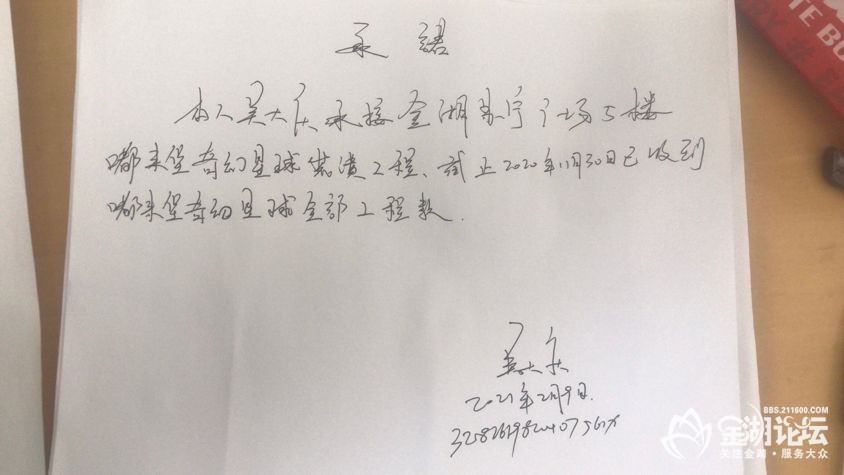 承诺
本人吴大庆承接金湖苏宁广场5楼
嘟来堡奇幻星球装潢工程、截止2020年11月30日已收到
嘟来堡奇幻星球全部工程款.
吴大庆
2021年2月9日.
BBS.211600.COM
金湖论坛
关注金湖·服务大众